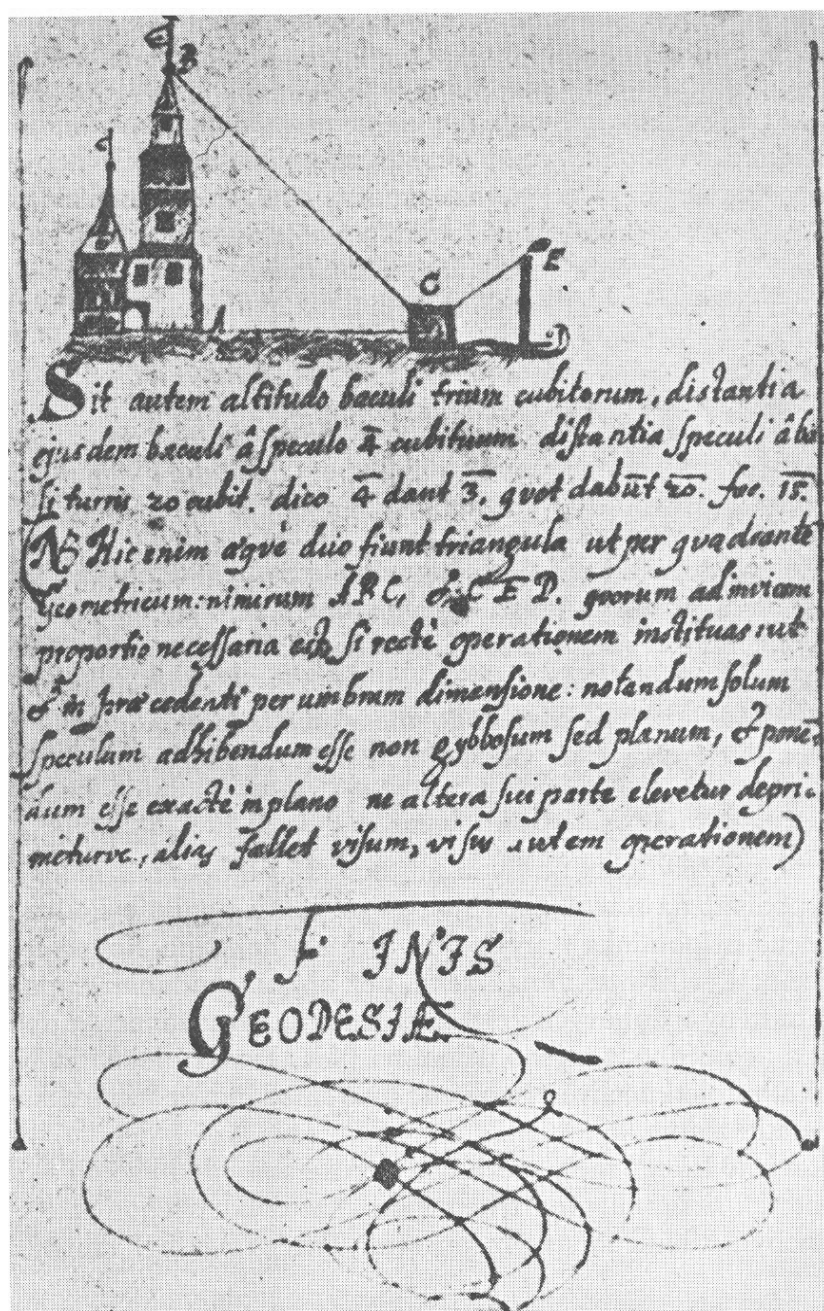 B
C
E
A
D
Sit autem altitudo baculi trium cubitorum, distantia
ejusdem baculi â speculo 4̄ cubituum distantia speculi â ba
si turris 20 cubit. dico 4̄ dant 3̄. qvot dabūt 20. fac. 15.
(NB Hic enim æqvè duo fiunt triangula ut per qvadrante
Geometricum: nimirum ABC, & CED. qvorum adinvicem
proportio necessaria est, si rectè operationem instituas: ut
& in præcedenti per umbram dimensione: notandum solum
speculum adhibendum esse non gybbosum sed planum, & ponē
dum esse exactè in plano ne altera sui parte elevetur depri-
meturve, alias fallet visum, visus autem operationem)
FINIS
GEODESIÆ.